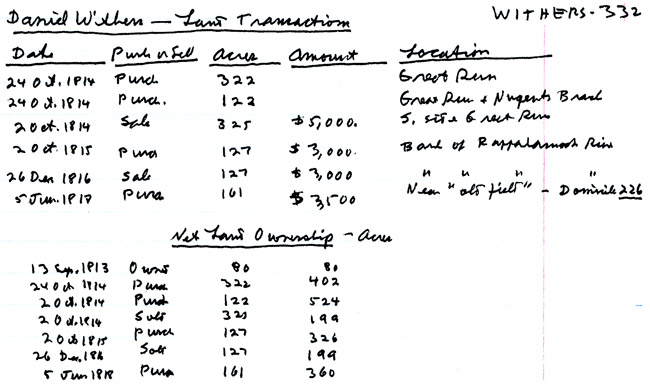 WITHERS-332
Daniel Withers — Land Transactions
Date Purch or Sell Acres Amount Location
24 Oct. 1814 Purch 322 Great Run
24 Oct. 1814 Purch. 122 Great Run + Nugents Branch
20 Oct. 1814 Sale 325 $5,000. S. side Great Run
20 Oct. 1815 Purch 127 $3,000. Bank of Rappahannock River
26 Dec 1816 Sale 127 $3,000 " " "
5 Jun. 1817 Purch 161 $3,500 Near "old field" - Dominile 226
Net Land Ownership - Acres
13 Sep. 1813 Owned 80 80
24 Oct 1814 Purch 322 402
20 Oct. 1814 Purch 122 524
20 Oct. 1814 Sold 325 199
20 Oct 1815 Purch 127 326
26 Dec. 1816 Sold 127 199
5 Jun 1818 Purch 161 360